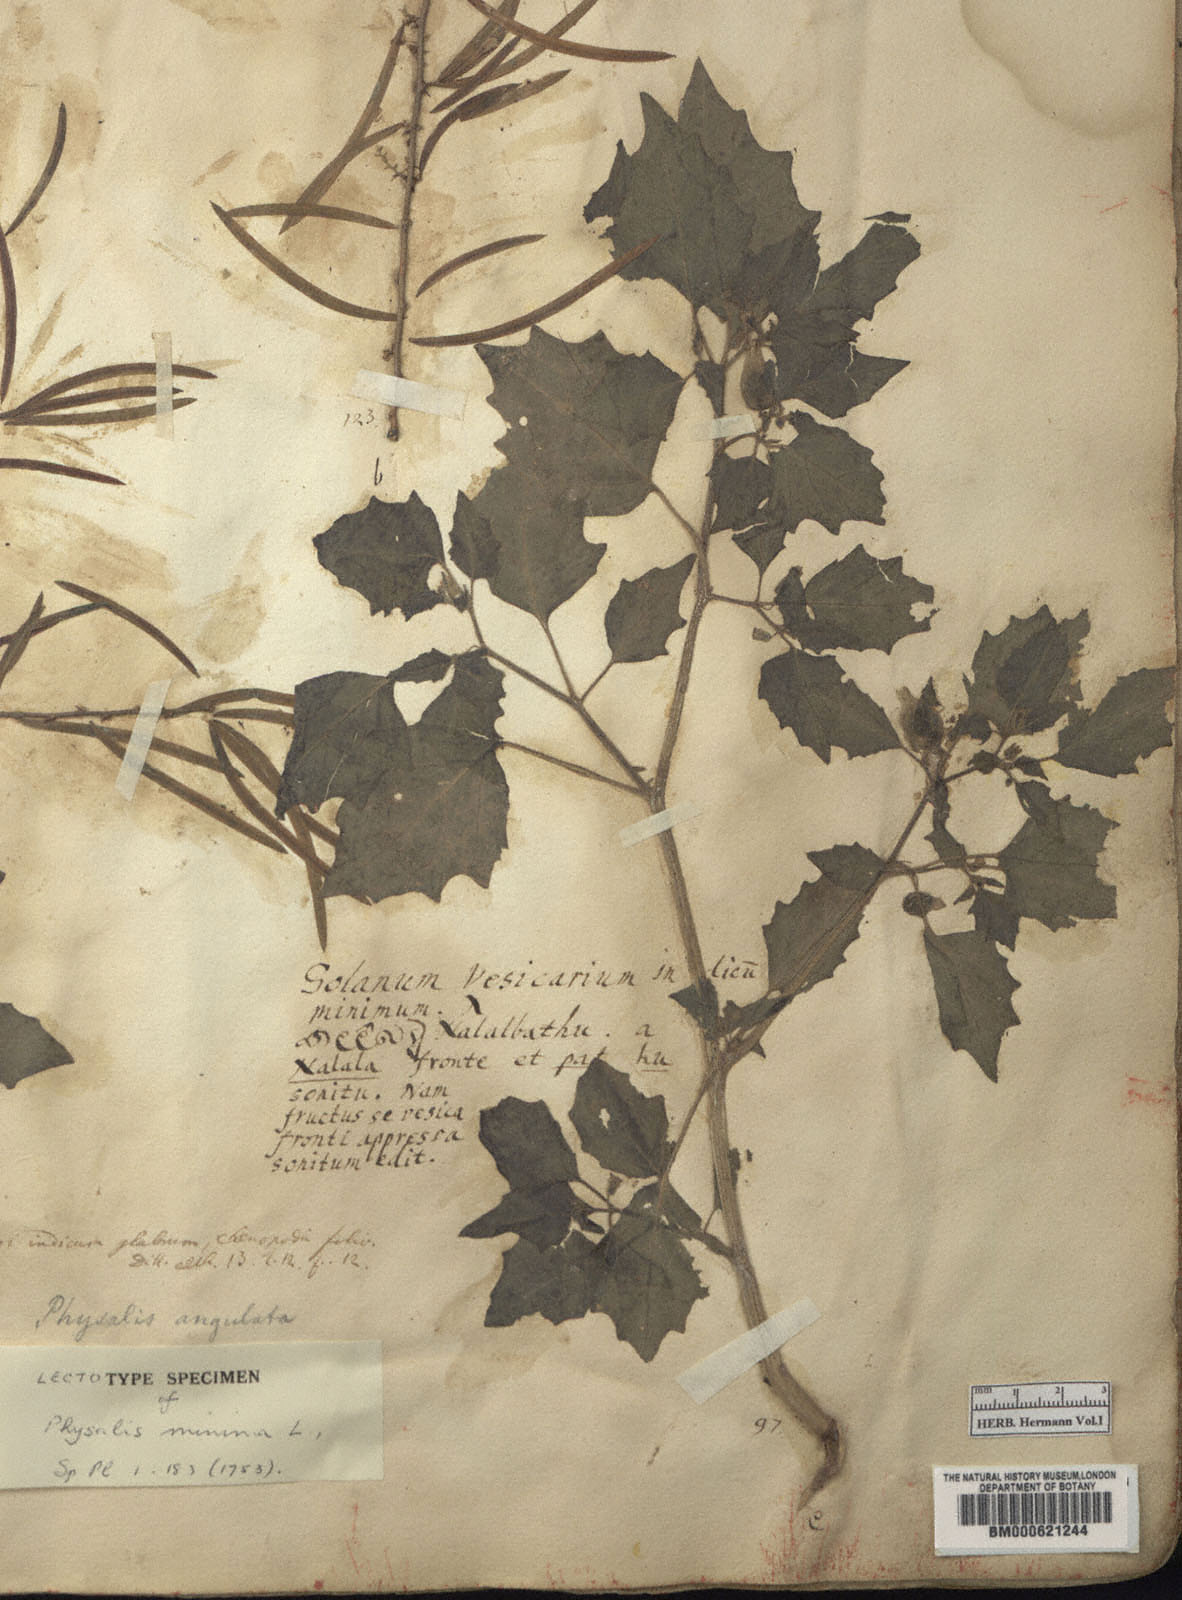 123.
b
Solanum vesicarium indicũ
minimum.
Nalalbathu. a
Nalala fronte et pat hu
sonitu. Nam
fructus se vesica
fronti appressa
sonitum edit.
indicum glabrum, chenopodii folio.
Dill. elth. 13. t. 12. f. 12.
Physalis angulata
LECTOTYPE SPECIMEN
of
Physalis minima L.,
Sp Pl 1. 183 (1753).
97.
e
mm 1 2 3
HERB. Hermann Vol.I
THE NATURAL HISTORY MUSEUM,LONDON
DEPARTMENT OF BOTANY
BM000621244